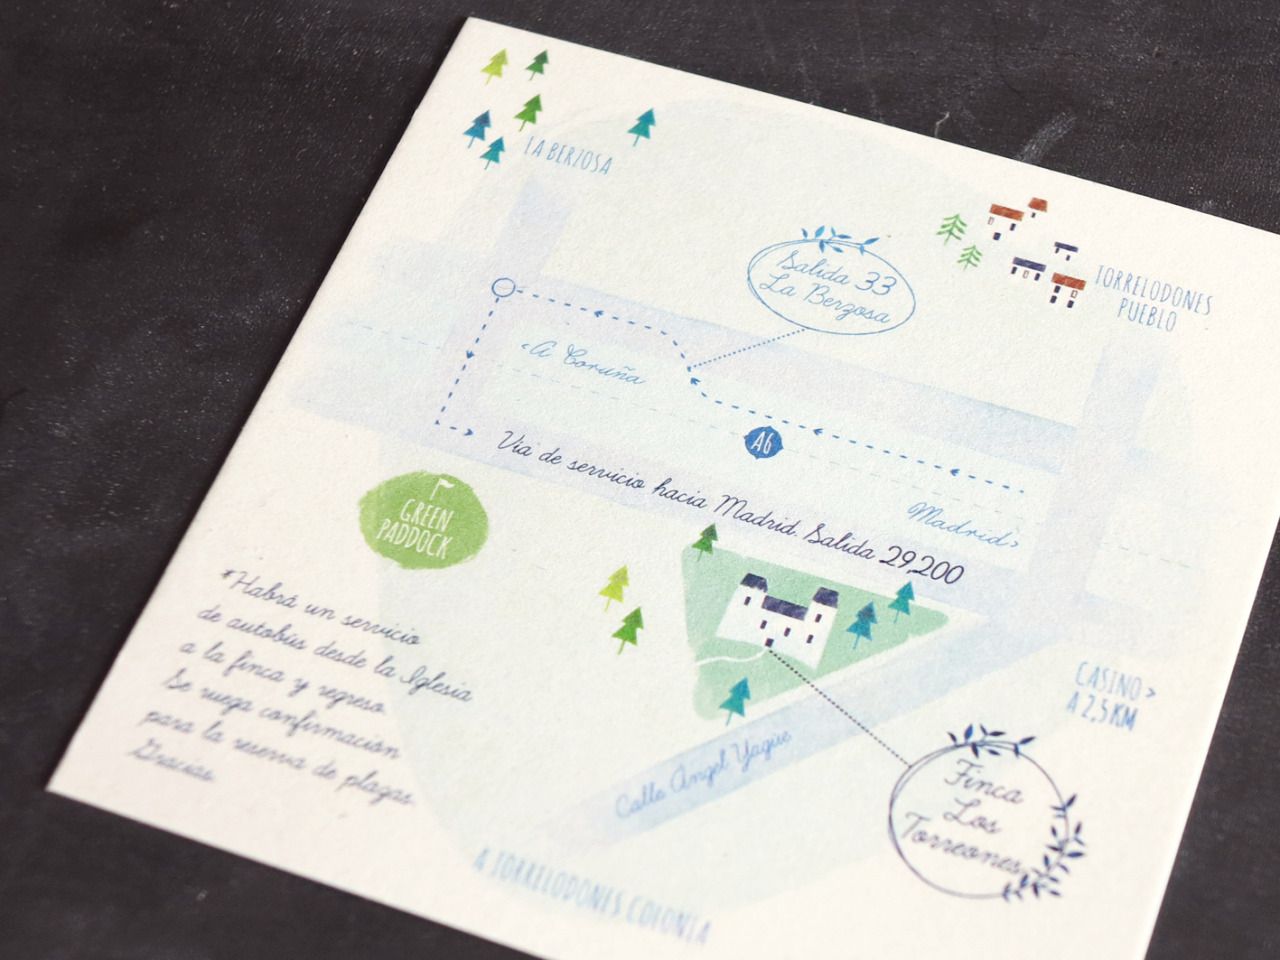 LA BERZOSA
Salida 33
La Berzosa
TORRELODONES
PUEBLO
<A Coruña
A6
Madrid>
Vía de servicio hacia Madrid. Salida 29,200
GREEN
PADDOCK
*Habrá un servicio
de autobús desde la Iglesia
a la finca y regreso.
Se ruega confirmación
para la reserva de plazas.
Gracias.
CASINO >
A 2,5 KM
Calle Ángel Yagüe
Finca
Los
Torreones
A TORRELODONES COLONIA